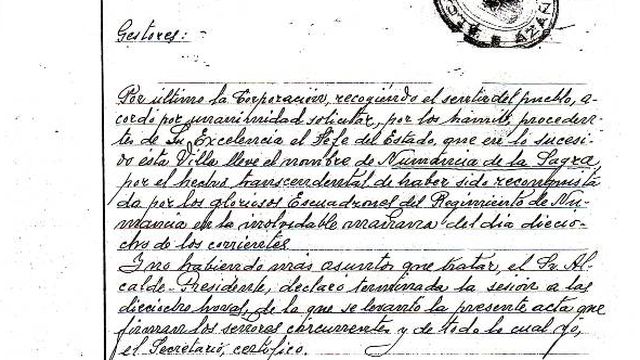 AZAÑA
Gestores:
Por último la Corporación, recogiendo el sentir del pueblo, a-
cordo por unanimidad solicitar, por los tramites proceden-
tes de Su Excelencia el Jefe del Estado, que en lo sucesi-
vo esta Villa lleve el nombre de Numancia de la Sagra
por el hecho transcendental de haber sido reconquista
da por los gloriosos Escuadrones del Regimiento de Nu-
mancia en la inolvidable mañana del dia diecio-
cho de los corrientes
Y no habiendo más asuntos que tratar, el Sr. Al-
calde-Presidente, declaro terminada la sesión a las
dieciocho horas, de la que se levanto la presente acta que
firman los señores concurrentes y de todo lo cual yo,
el Secretario, certifico.